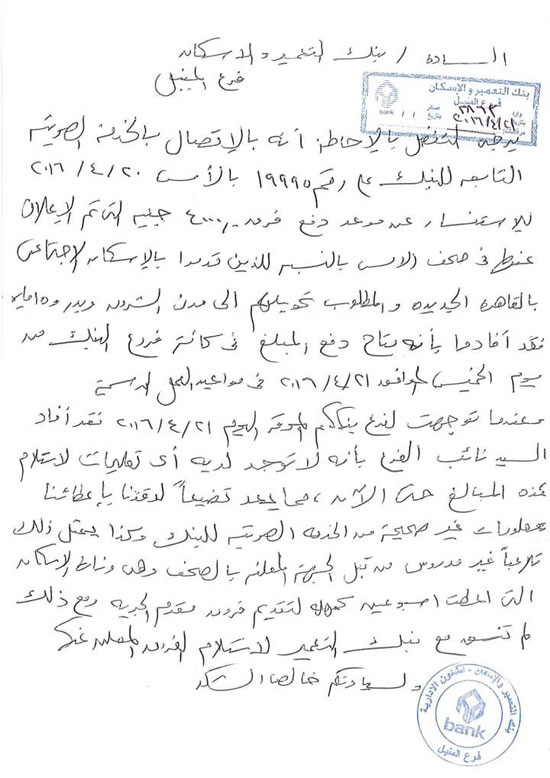 السادة / بنك التعمير والاسكان
فرع المنيل
بنك التعمير والإسكان
فرع المنيل
bank
٢٠١٦/٤/٢١
يرجى التفضل بالإحاطة أنه بالإتصال بالخدمة الصوتية
التابعه للبنك على رقم ١٩٩٩٥ بالأمس ٢٠ / ٤ / ٢٠١٦
للإستفسار عن موعد دفع فروق ٤٠٠٠ جنيه التى تم الإعلان
عنها فى صحف الامس بالنسبه للذين تقدموا بالإسكان الإجتماعى
بالقاهرة الجديده والمطلوب تحويلهم الى مدن الشروق وبدر و
فقد أفادوا بأنه متاح دفع المبلغ فى كافة فروع البنك من
يوم الخميس الموافق ٢١/ ٤/ ٢٠١٦ فى مواعيد العمل الرسمية
وعندما توجهت لفرع بنككم الموقر اليوم ٢١ /٤/ ٢٠١٦ فقد أفاد
السيد نائب الفرع بأنه لا توجد لديه أى تعليمات لاستلام
هذه المبالغ حتى الآن ، مما يعد تضيعاً لوقتنا بإعطائنا
معلومات غير صحيحة من الخدمه الصوتيه للبنك وكذا يمثل ذلك
تلاعباً غير مدروس من قبل الجهة المعلنه بالصحف وهى وزارة الإسكان
التى اعطت اسبوعين كمهله لتقديم فروق مقدم الجديه ومع ذلك
لم تنسق مع بنك التعمير لاستلام الفروق المعلن عنها
ولسيادتكم خالص الشكر
بنك التعمير والإسكان - الشئون الادارية
bank
فرع المنيل